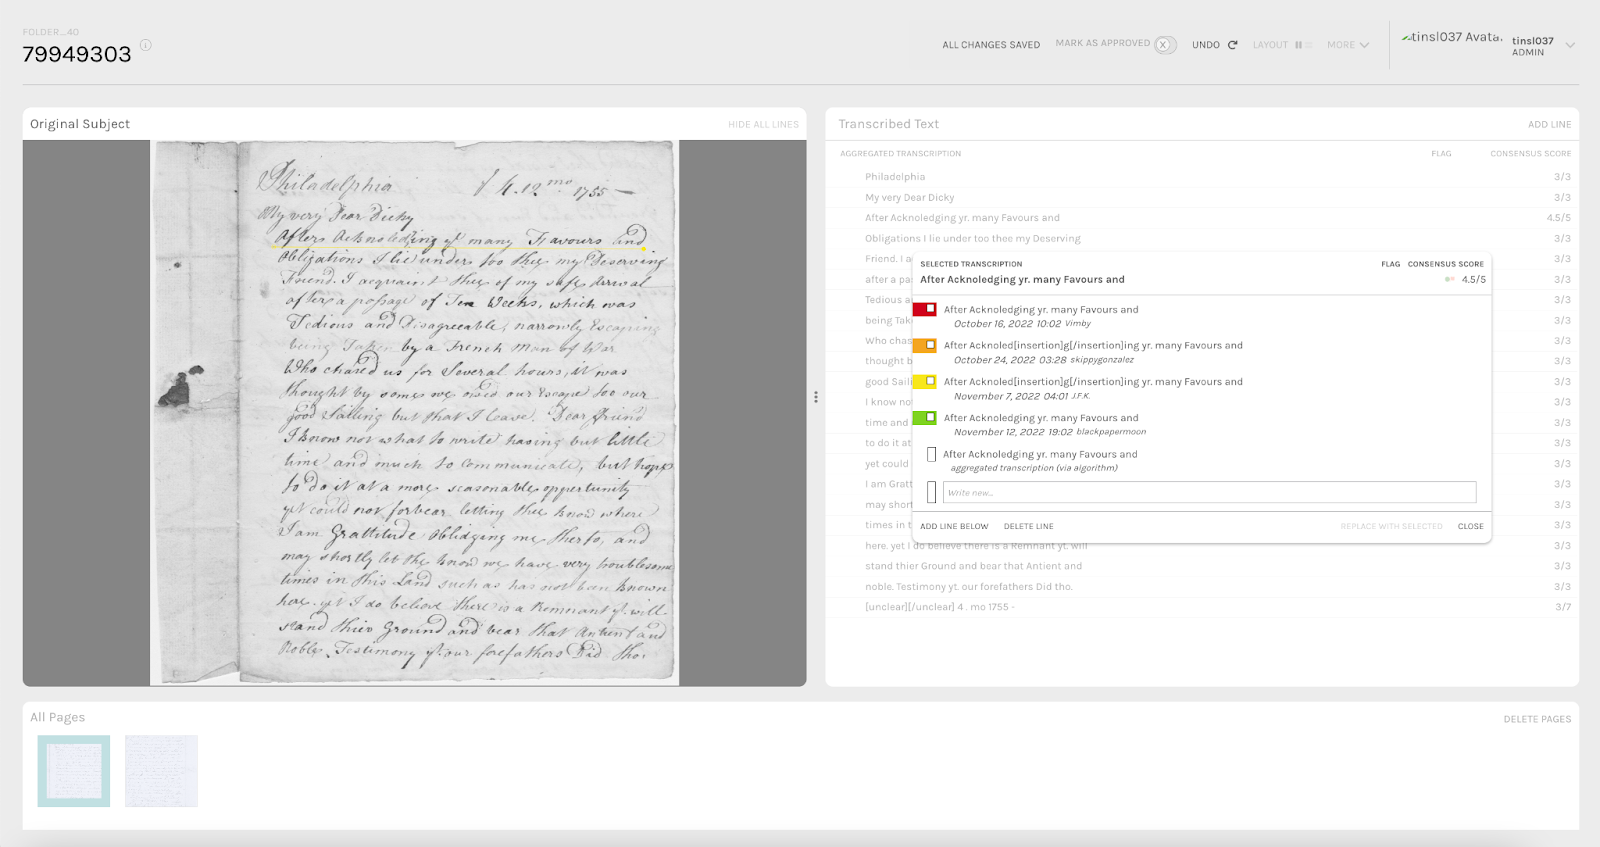 FOLDER__40
79949303
ALL CHANGES SAVED
MARK AS APPROVED
X
UNDO
LAYOUT
MORE
tinsl037 Avata
tinsl037
ADMIN
Original Subject
HIDE ALL LINES
Philadelphia 4. 12mo 1755 —
My very Dear Dicky
After Acknoledging yr. many Favours and
Obligations I lie under too thee my Deserving
Friend. I acquaint thee of my safe Arrival
after a passage of Ten Weeks, which was
Tedious and Disagreeable, narrowly Escaping
being Taken by a French Man of War
Who chased us for Several hours, it was
thought by some we owed our Escape too our
good Sailing but that I leave. Dear friend
I know not what to write having but little
time and much to Communicate, but hope
to do it at a more seasonable opportunity
yet could not forbear letting thee know where
I am Grattitude Obligding me therto, and
may shortly let thee know we have very troublesome
times in this Land such as has not been known
here. yet I do believe there is a Remnant yt. will
stand thier Ground and bear that Antient and
Noble. Testimony yt. our forefathers Did tho.
Transcribed Text
ADD LINE
AGGREGATED TRANSCRIPTION
FLAG
CONSENSUS SCORE
Philadelphia 3/3
My very Dear Dicky 3/3
After Acknoledging yr. many Favours and 4.5/5
Obligations I lie under too thee my Deserving 3/3
Friend. I a 3/3
after a pa 3/3
Tedious a 3/3
being Tak 3/3
Who chas 3/3
thought b 3/3
good Saili 3/3
I know no 3/3
time and 3/3
to do it at 3/3
yet could 3/3
I am Gratt 3/3
may short 3/3
times in t 3/3
here. yet I do believe there is a Remnant yt. will 3/3
stand thier Ground and bear that Antient and 3/3
noble. Testimony yt. our forefathers Did tho. 3/3
[unclear][/unclear] 4 . mo 1755 - 3/7
SELECTED TRANSCRIPTION
FLAG
CONSENSUS SCORE
After Acknoledging yr. many Favours and
4.5/5
After Acknoledging yr. many Favours and
October 16, 2022 10:02 Vimby
After Acknoled[insertion]g[/insertion]ing yr. many Favours and
October 24, 2022 03:28 skippygonzalez
After Acknoled[insertion]g[/insertion]ing yr. many Favours and
November 7, 2022 04:01 J.F.K.
After Acknoledging yr. many Favours and
November 12, 2022 19:02 blackpapermoon
After Acknoledging yr. many Favours and
aggregated transcription (via algorithm)
Write new...
ADD LINE BELOW
DELETE LINE
REPLACE WITH SELECTED
CLOSE
All Pages
DELETE PAGES